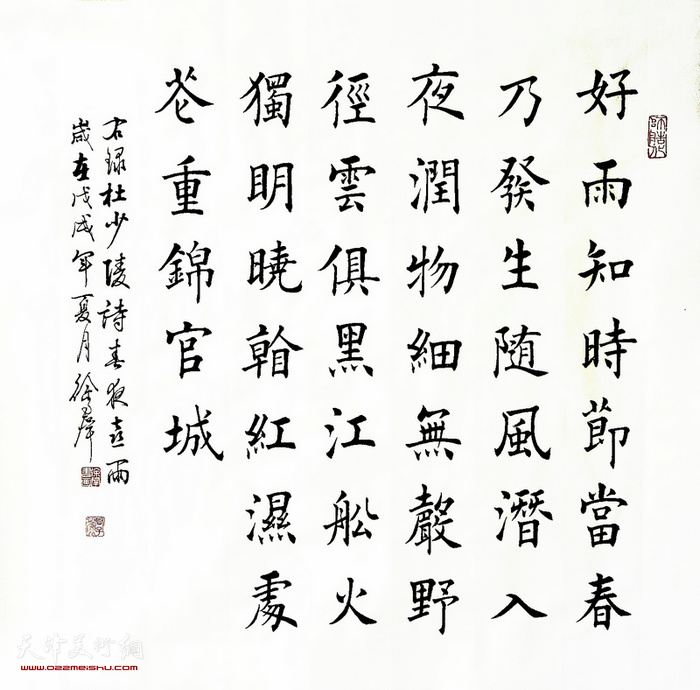 好雨知時節當春
乃發生随風潛入
夜潤物細無聲野
徑雲俱黑江船火
獨明曉看紅濕處
花重錦官城
右録杜少陵詩春夜喜雨
歲在戊戌年夏月徐
天津美術網
www.022meishu.com